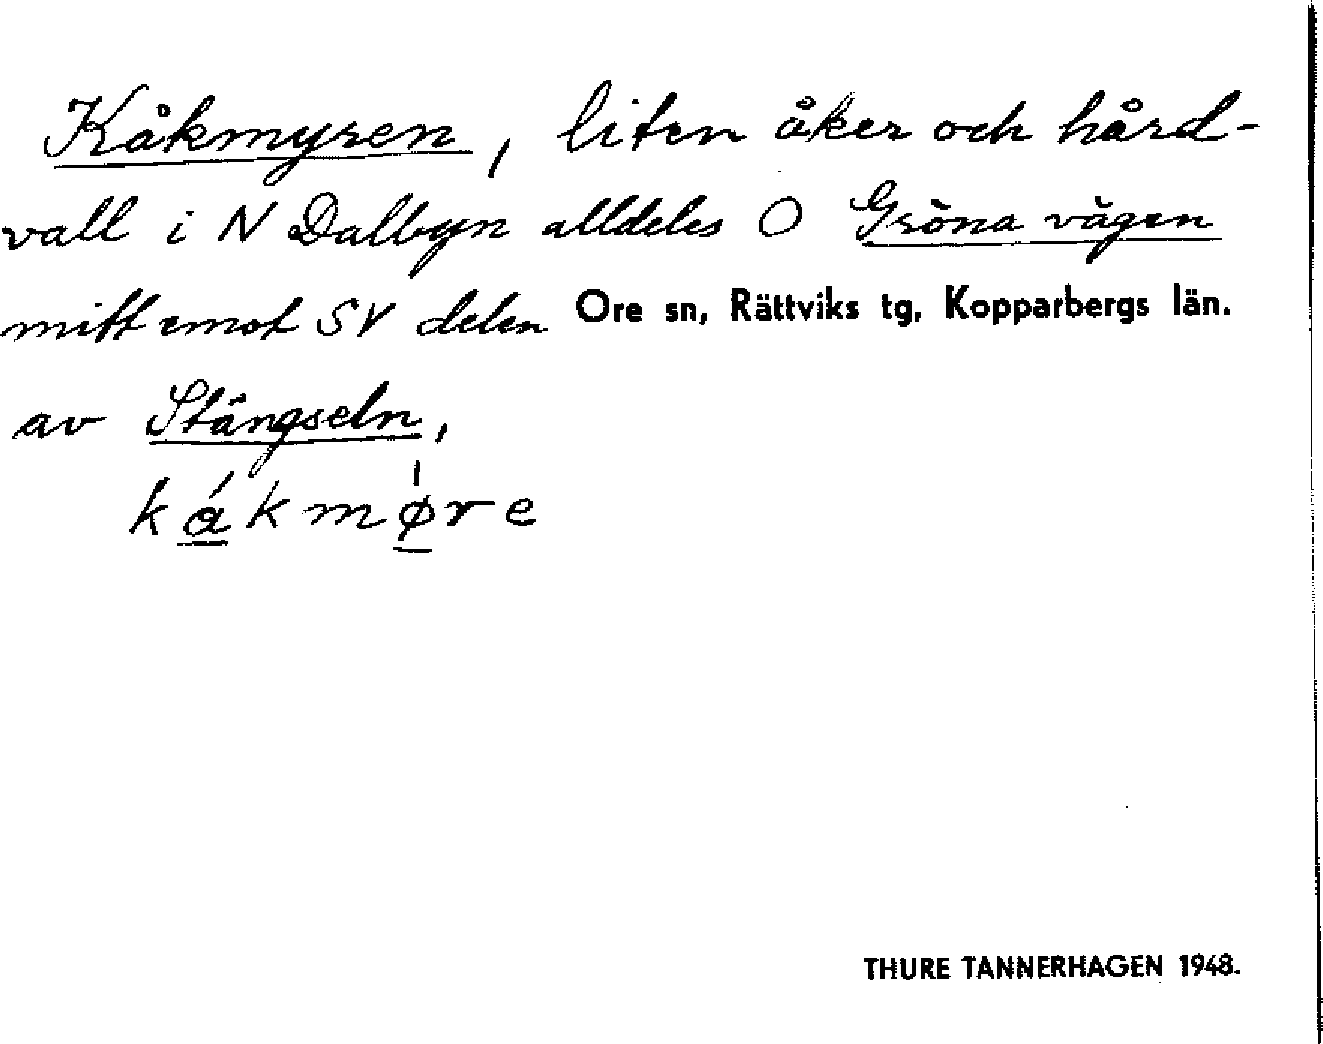 Kåkmyren, liten åker och hård-
vall i N Dalbyn alldeles O Gröna vägen
mitt emot SV delen
Ore sn, Rättviks tg, Kopparbergs län.
av Stängseln,
kákmøre
THURE TANNERHAGEN 1948.